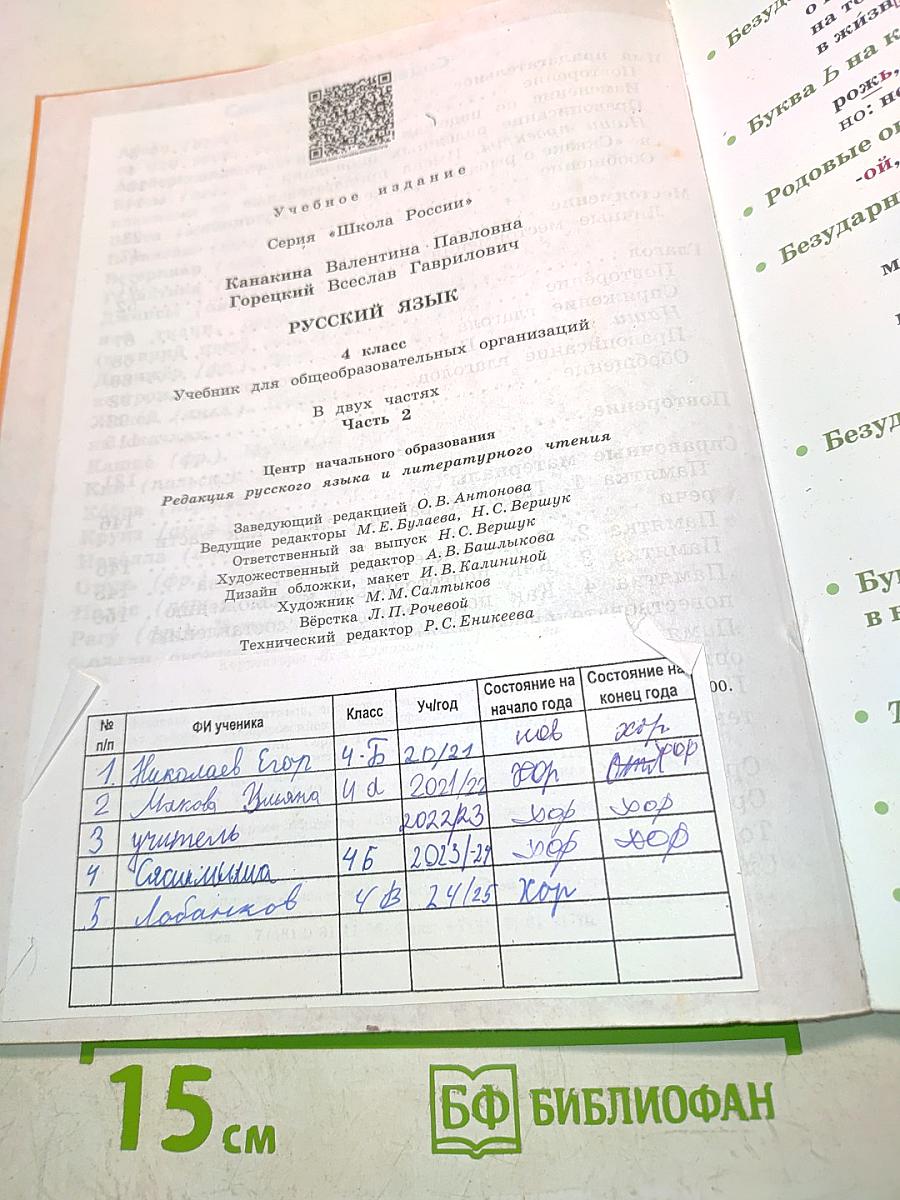 Учебное издание
Серия «Школа России»
Канакина Валентина Павловна
Горецкий Всеслав Гаврилович
РУССКИЙ ЯЗЫК
4 класс
Учебник для общеобразовательных организаций
В двух частях
Часть 2
Центр начального образования
Редакция русского языка и литературного чтения
Заведующий редакцией О. В. Антонова
Ведущие редакторы М. Е. Булаева, Н. С. Вершук
Ответственный за выпуск Н. С. Вершук
Художественный редактор А. В. Башлыкова
Дизайн обложки, макет И. В. Калининой
Художник М. М. Салтыков
Вёрстка Л. П. Рочевой
Технический редактор Р. С. Еникеева
№ п/п ФИ ученика Класс Уч/год Состояние на начало года Состояние на конец года
1. Николаев Егор 4-Б 20/21 нов хор
2 Макова Ульяна 4 а 2021/22 хор хор
3 учитель 2022/23 хор хор
4 4Б 2023/-24 хор хор
5 Лобанков 4 В 24/25 хор
00.
Безуда
на те
в жизн
Буква Ь на к
рожь,
но: но
Родовые ок
-ой,
Безударн
Безуд
Бук
в н
15 см
БФ БИБЛИОФАН